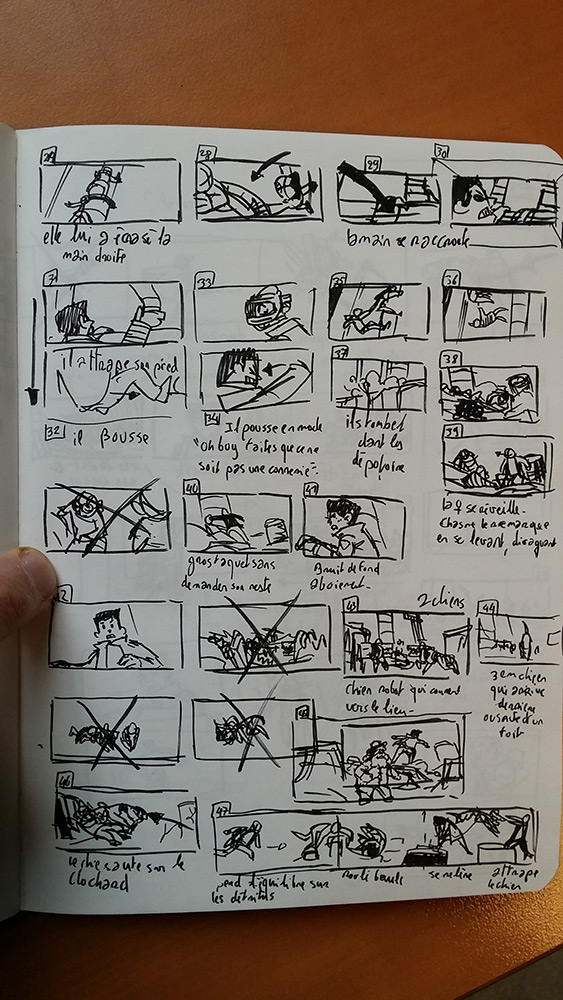 28
29
30
elle lui a écrasé la
main droite
la main se raccroche
31
33
35
36
il attrape son pied
37
38
34
32 il pousse
Il pousse en mode
"oh boy faites que ce ne
soit pas une connerie".
ils tombent
dans les
39
la ♀ se réveille
en se levant,
40
41
gros taquet sans
demander son reste
Bruit de fond
aboiement
2
43
2 chiens
44
chien robot qui courent
vers le lieu
3em chien
qui arrive
derrière
ou saute d'un
toit
46
47
le chien saute sur le
clochard
perd l'équilibre sur
les détritus
roulé boulé
attrape
le chien